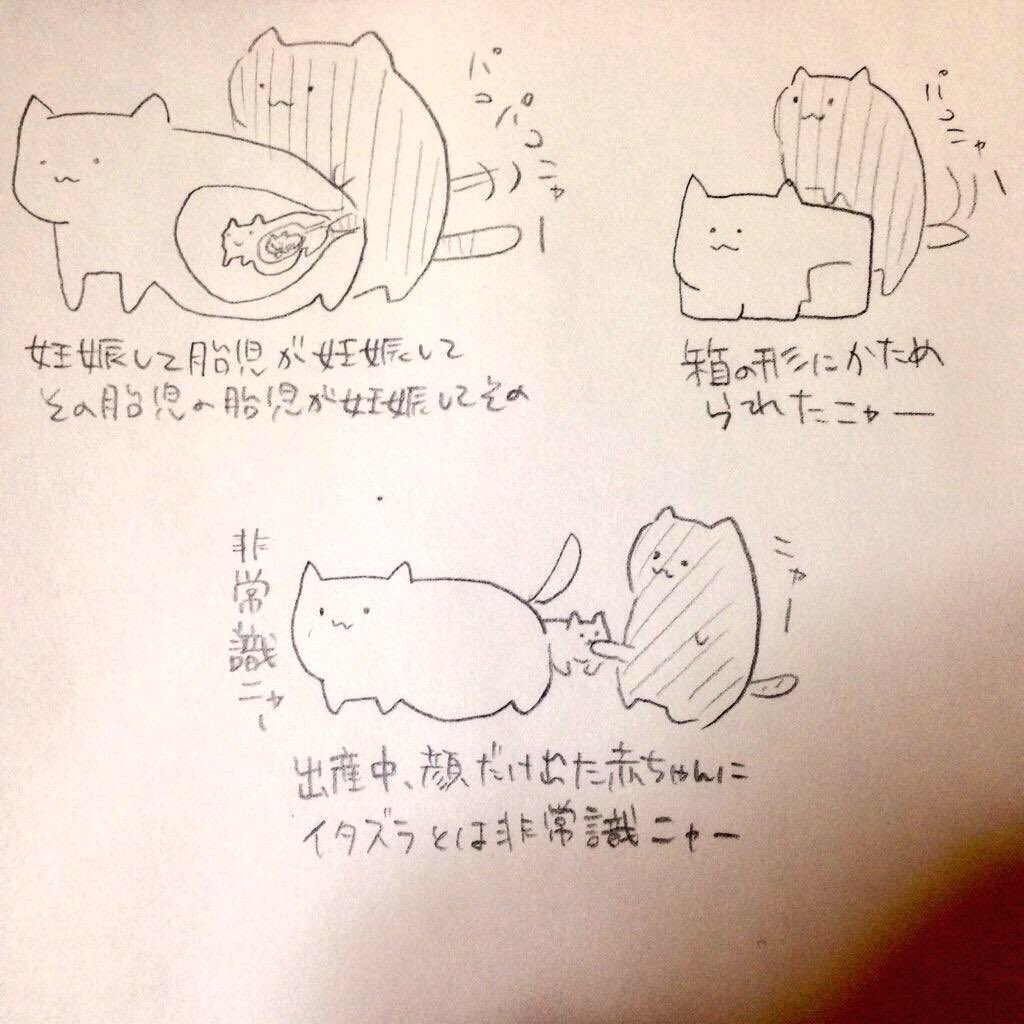 パコパコニャー
妊娠して胎児が妊娠して
その胎児の胎児が妊娠してその
パコニャー
箱の形にかため
られたニャー
非常識ニャー
ニャー
出産中、顔だけ出た赤ちゃんに
イタズラとは非常識ニャー